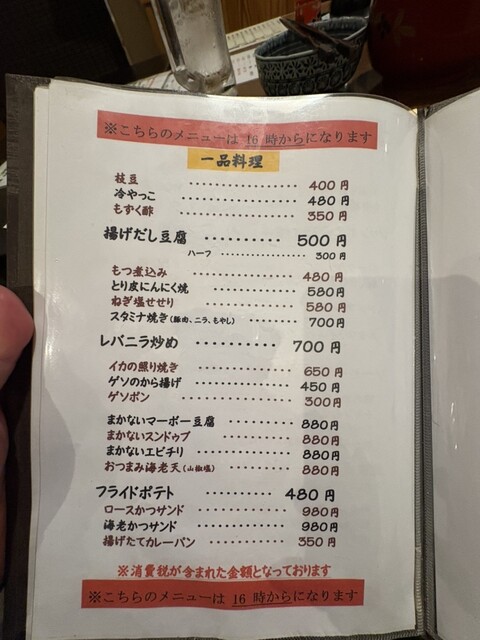 ※こちらのメニューは 16 時からになります
一品料理
枝豆 ………………… 400 円
冷やっこ ………………… 480 円
もずく酢 ………………… 350 円
揚げだし豆腐 ………… 500 円
ハーフ ………………… 300 円
もつ煮込み ………………… 480 円
とり皮にんにく焼 ………… 580円
ねぎ塩せせり ………… 580 円
スタミナ焼き(豚肉、ニラ、もやし) ………… 700円
レバニラ炒め ………… 700 円
イカの照り焼き ………… 650 円
ゲソのから揚げ ………… 450 円
ゲソポン ………… 300円
まかないマーボー豆腐 ………… 880円
まかないスンドゥブ ………… 880円
まかないエビチリ ………… 880円
おつまみ海老天(山椒塩) ………… 880円
フライドポテト ………… 480 円
ロースかつサンド ………… 980円
海老かつサンド ………… 980円
揚げたてカレーパン ………… 350 円
※消費税が含まれた金額となっております
※こちらのメニューは 16 時からになります